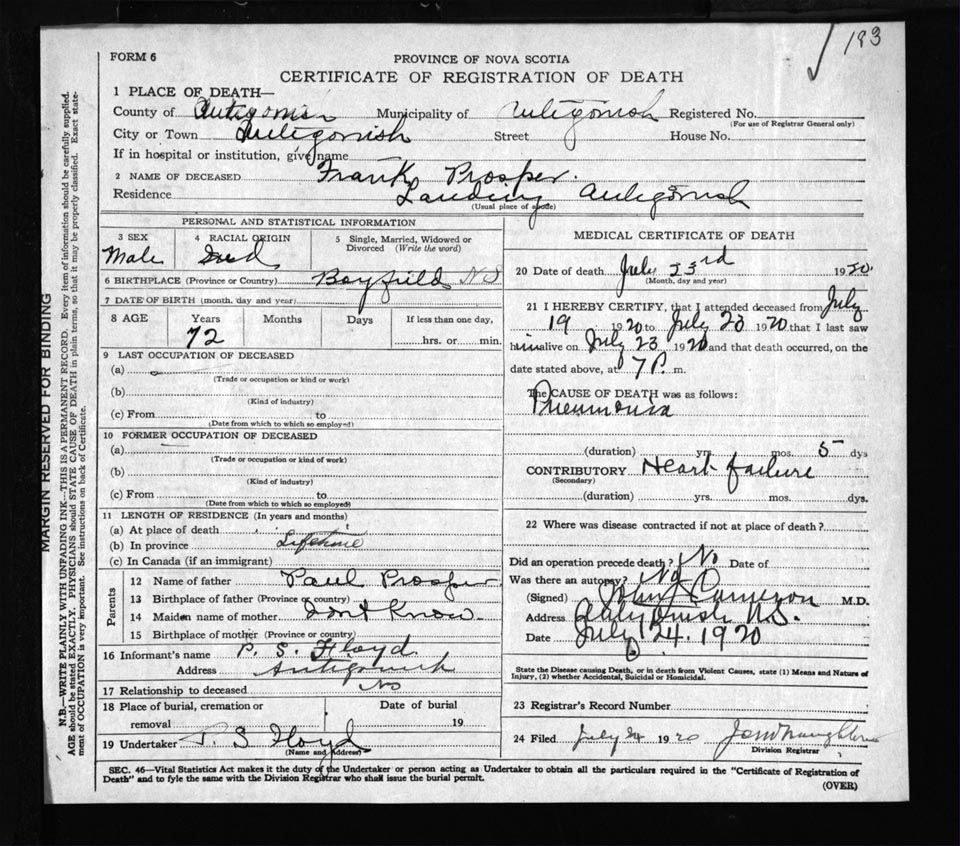 193
FORM 6
PROVINCE OF NOVA SCOTIA
CERTIFICATE OF REGISTRATION OF DEATH
1 PLACE OF DEATH—
County of Antigonish Municipality of Antigonish Registered No.
(For use of Registrar General only)
City or Town Antigonish Street House No.
If in hospital or institution, give name
2 NAME OF DECEASED Frank Prosper.
Residence Landing Antigonish
(Usual place of abode)
PERSONAL AND STATISTICAL INFORMATION
3 SEX 4 RACIAL ORIGIN 5 Single, Married, Widowed or Divorced (Write the word)
Male
6 BIRTHPLACE (Province or Country) Bayfield N S
7 DATE OF BIRTH (month, day and year)
8 AGE Years Months Days If less than one day,
72 hrs. or min.
9 LAST OCCUPATION OF DECEASED
(a)
(Trade or occupation or kind or work)
(b)
(Kind of industry)
(c) From to
(Date from which to which so employed)
10 FORMER OCCUPATION OF DECEASED
(a)
(Trade or occupation or kind of work)
(b)
(Kind of industry)
(c) From to
(Date from which to which so employed)
11 LENGTH OF RESIDENCE (In years and months)
(a) At place of death
(b) In province Lifetime
(c) In Canada (if an immigrant)
Parents
12 Name of father Paul Prosper
13 Birthplace of father (Province or country)
14 Maiden name of mother Dont Know
15 Birthplace of mother (Province or country)
16 Informant's name P. S. Floyd.
Address Antigonish
17 Relationship to deceased No
18 Place of burial, cremation or Date of burial
removal 19
19 Undertaker P. S Floyd
(Name and Address)
MEDICAL CERTIFICATE OF DEATH
20 Date of death July 23rd 1920
(Month, day and year)
21 I HEREBY CERTIFY, that I attended deceased from July
19 1920 to July 20 1920 that I last saw
him alive on July 23 1920 and that death occurred, on the
date stated above, at 7 P. m.
The CAUSE OF DEATH was as follows:
Pneumonia
(duration) yrs. mos. 5 dys
CONTRIBUTORY Heart failure
(Secondary)
(duration) yrs. mos. dys.
22 Where was disease contracted if not at place of death?
Did an operation precede death? No Date of
Was there an autopsy? No
(Signed) John J Cameron M.D.
Address Antigonish N.S.
Date July 24. 1920
State the Disease causing Death, or in death from Violent Causes, state (1) Means and Nature of
Injury, (2) whether Accidental, Suicidal or Homicidal.
23 Registrar's Record Number
24 Filed July 24 1920
Division Registrar
SEC. 46—Vital Statistics Act makes it the duty of the Undertaker or person acting as Undertaker to obtain all the particulars required in the "Certificate of Registration of
Death" and to fyle the same with the Division Registrar who shall issue the burial permit.
(OVER)
MARGIN RESERVED FOR BINDING
N.B.—WRITE PLAINLY WITH UNFADING INK—THIS IS A PERMANENT RECORD. Every item of information should be carefully supplied.
AGE should be stated EXACTLY. PHYSICIANS should STATE CAUSE OF DEATH in plain terms, so that it may be properly classified. Exact state-
ment of OCCUPATION is very important. See instructions on back of Certificate.